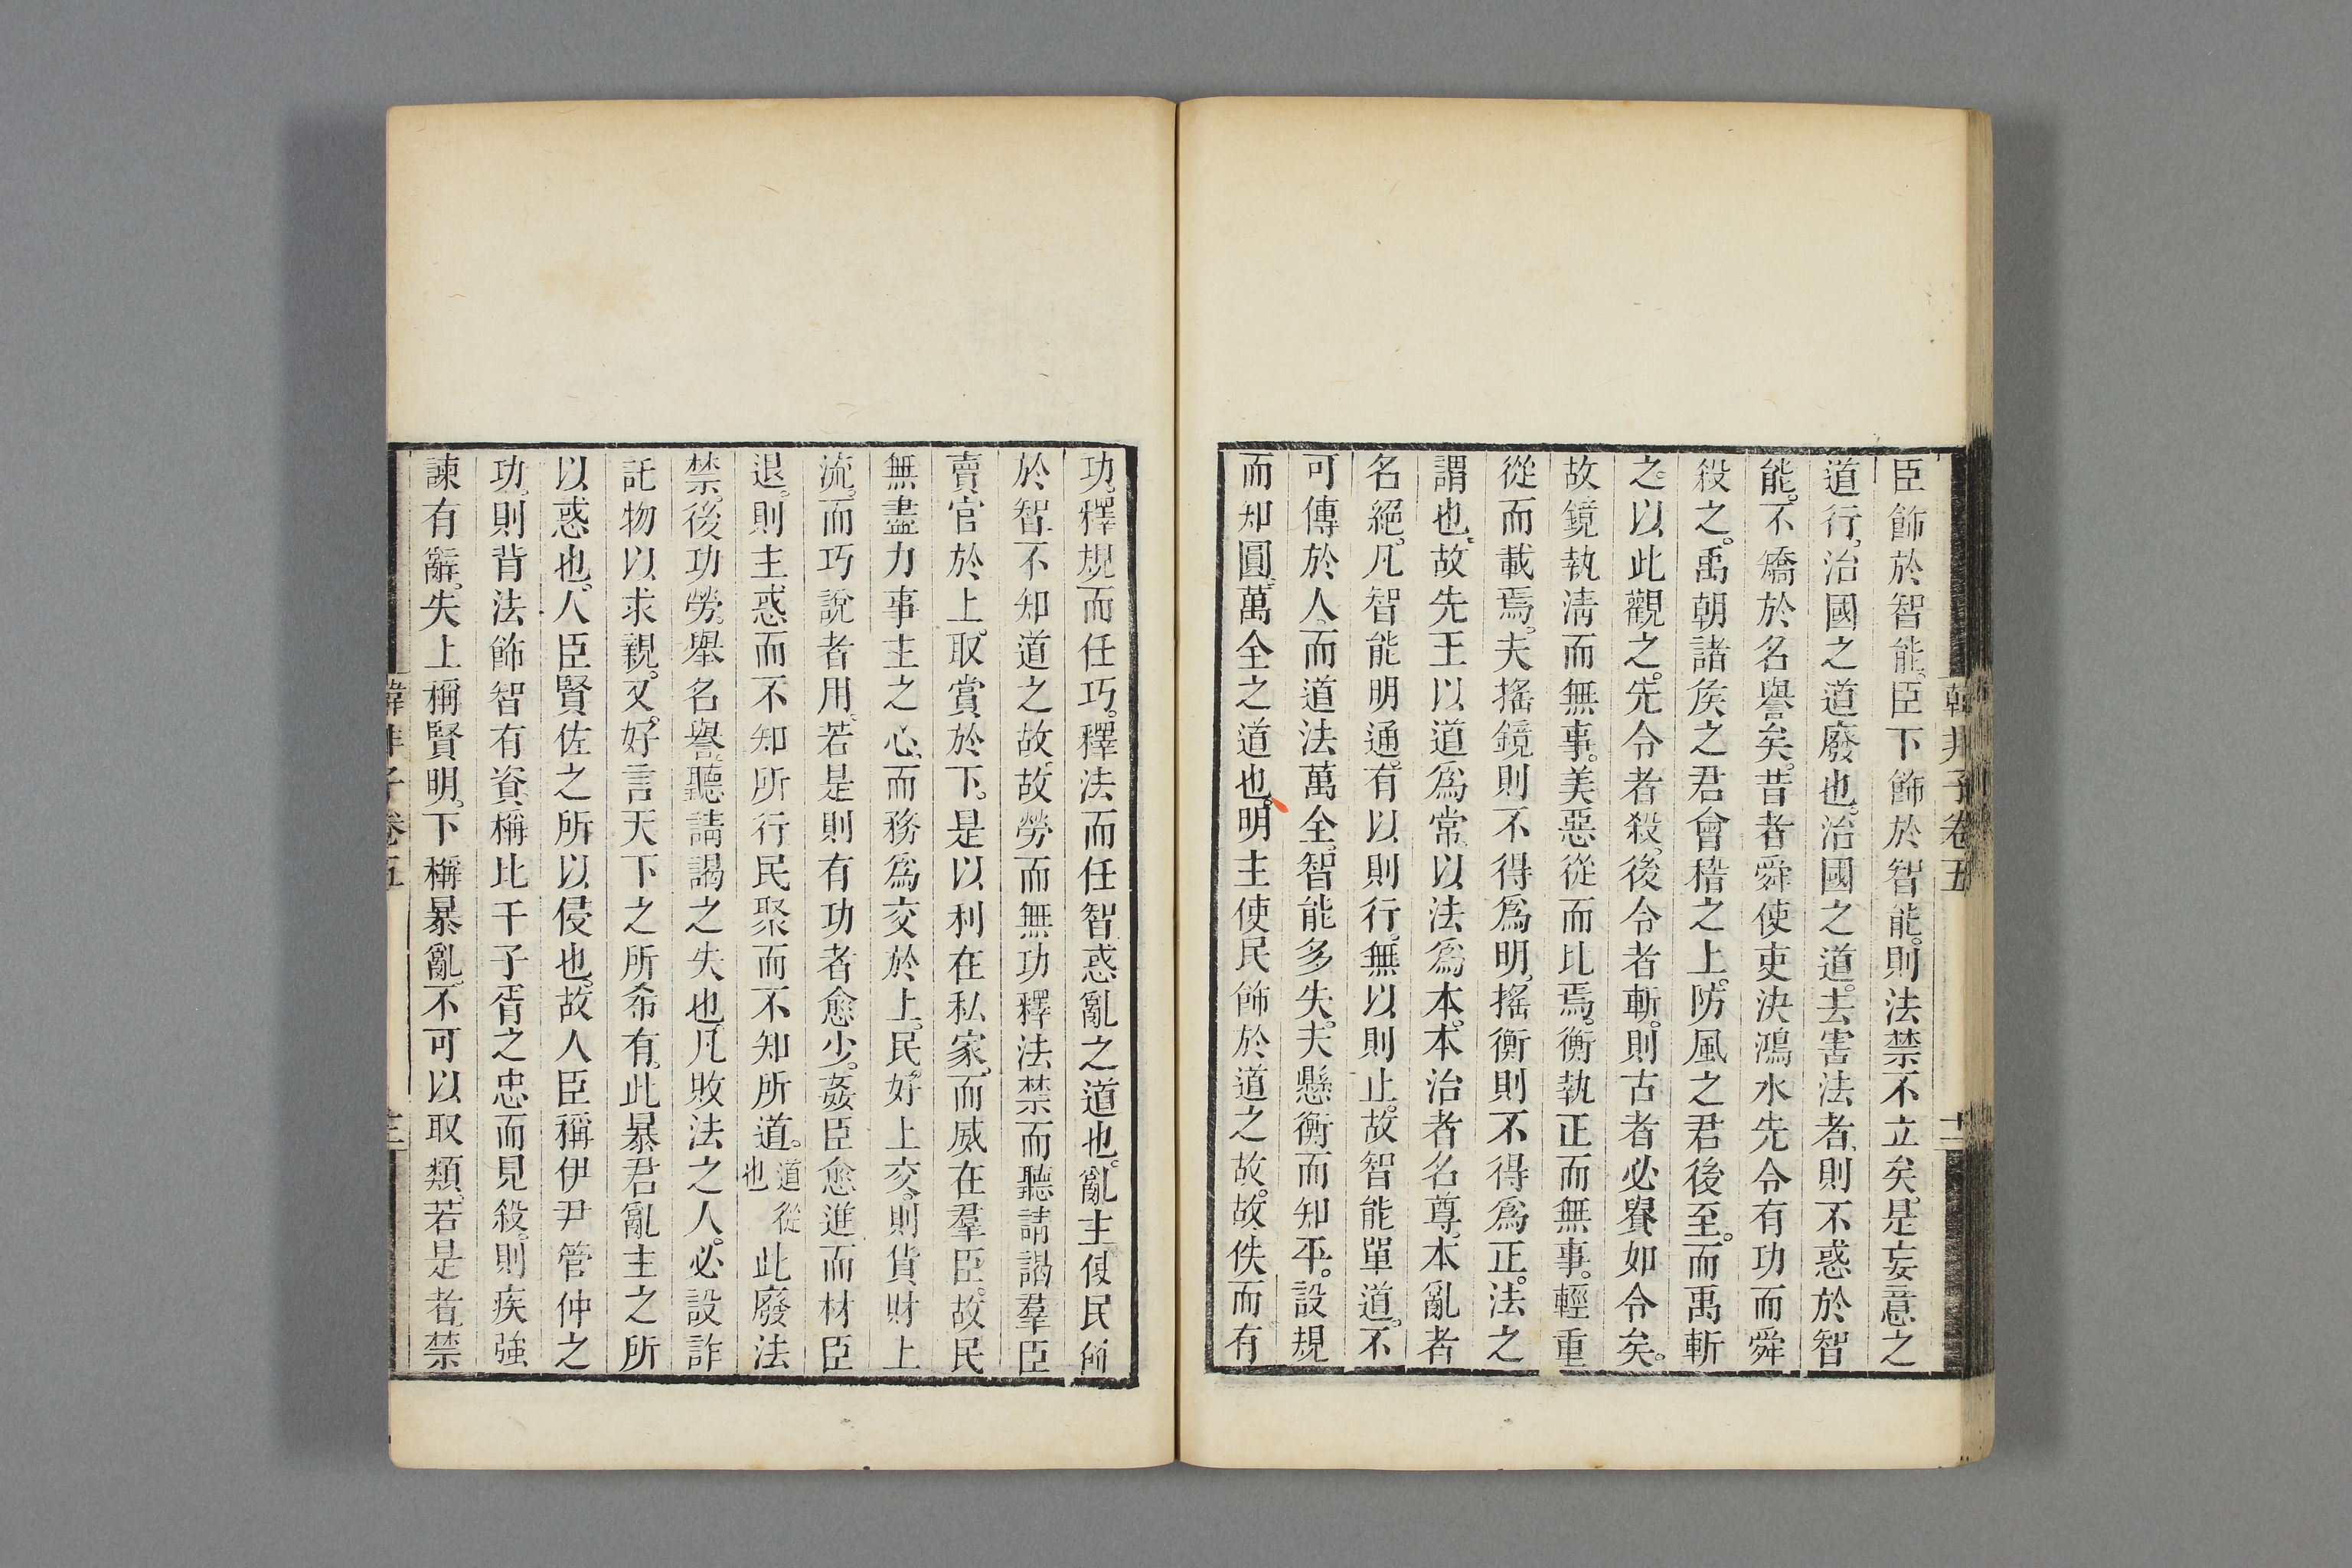 韓非子卷五
十二
臣飾於智能。臣下飾於智能。則法禁不立矣。是妄意之
道行。治國之道廢也。治國之道。去害法者。則不惑於智
能。不矯於名譽矣。昔者舜使吏決鴻水先令有功而舜
殺之。禹朝諸矦之君會稽之上。防風之君後至。而禹斬
之。以此觀之。先令者殺。後令者斬。則古者必貴如令矣。
故鏡執淸而無事。美惡從而比焉。衡執正而無事。輕重
從而載焉。夫搖鏡則不得爲明。搖衡則不得爲正。法之
謂也。故先王以道爲常。以法爲本。本治者名尊。本亂者
名絕。凡智能明通。有以則行。無以則止。故智能單道。不
可傳於人。而道法萬全。智能多失。夫懸衡而知平。設規
而知圓。萬全之道也。明主使民飾於道之故。故佚而有
功。釋規而任巧。釋法而任智。惑亂之道也。亂主使民飾
於智。不知道之故。故勞而無功。釋法禁而聽請謁。羣臣
賣官於上。取賞於下。是以利在私家。而威在羣臣。故民
無盡力事主之心。而務爲交於上。民好上交。則貨財上
流。而巧說者用。若是則有功者愈少。姦臣愈進而材臣
退。則主惑而不知所行。民聚而不知所道。道從也此廢法
禁。後功勞。舉名譽。聽請謁之失也。凡敗法之人。必設詐
託物以求親。又好言天下之所希有。此暴君亂主之所
以惑也。人臣賢佐之所以侵也。故人臣稱伊尹管仲之
功。則背法飾智有資。稱比干子胥之忠而見殺。則疾強
諫有辭。夫上稱賢明。下稱暴亂。不可以取類。若是者禁
韓非子卷五